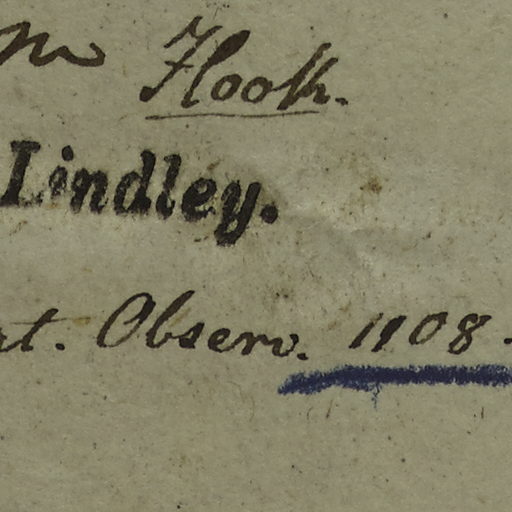 m Hook.
Lindley.
rt. Observ. 1108.